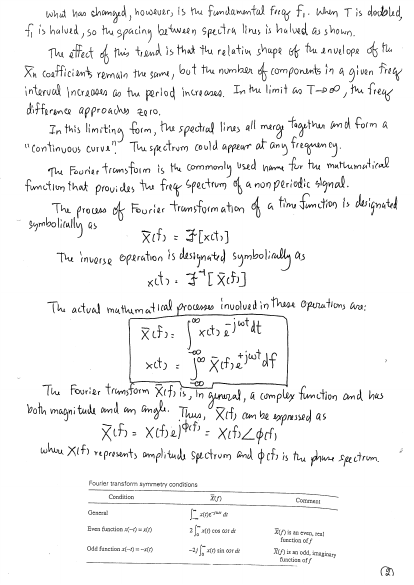 what has changed, however, is the fundamental freq f₁. When T is doubled,
f₁ is halved, so the spacing between spectra lines is halved as shown.
The effect of this trend is that the relative shape of the envelope of the
X̄n coefficients remain the same, but the number of components in a given freq
interval increases as the period increases. In the limit as T→∞, the freq
difference approaches zero.
In this limiting form, the spectral lines all merge together and form a
"continuous curve". The spectrum could appear at any frequency.
The Fourier transform is the commonly used name for the mathematical
function that provides the freq spectrum of a nonperiodic signal.
The process of Fourier transformation of a time function is designated
symbolically as
X̄(f) = ℱ[x(t)]
The inverse operation is designated symbolically as
x(t) = ℱ⁻¹[X̄(f)]
The actual mathematical processes involved in these operations are:
X̄(f) = ∫_{-∞}^{∞} x(t) e^{-jωt} dt
x(t) = ∫_{-∞}^{∞} X̄(f) e^{+jωt} df
The Fourier transform X̄(f) is, in general, a complex function and has
both magnitude and an angle. Thus, X̄(f) can be expressed as
X̄(f) = X(f) e^{jφ(f)} = X(f)∠φ(f)
where X(f) represents amplitude spectrum and φ(f) is the phase spectrum.
Fourier transform symmetry conditions
Condition X̄(f) Comment
General ∫_{-∞}^{∞} x(t)e^{-jωt} dt
Even function x(-t) = x(t) 2∫_0^∞ x(t) cos ωt dt X̄(f) is an even, real
function of f
Odd function x(-t) = -x(t) -2j∫_0^∞ x(t) sin ωt dt X̄(f) is an odd, imaginary
function of f
(2)